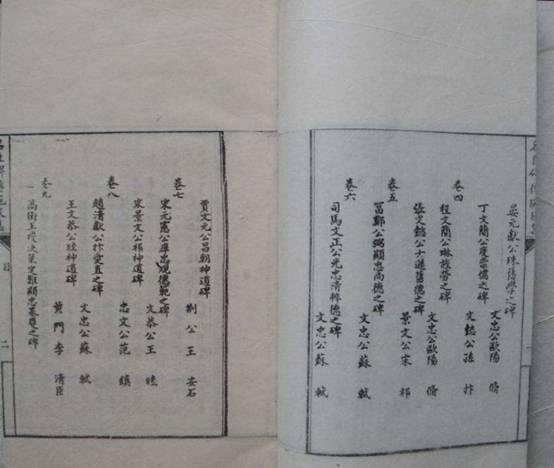 晏元獻公殊舊學之碑
文忠公歐陽脩
卷四
丁文簡公度崇儒之碑
文懿公孫抃
程文簡公琳旌勞之碑
文忠公歐陽脩
張文懿公士遜舊德之碑
景文公宋祁
卷五
富鄭公弼顯忠尚德之碑
文忠公蘇軾
卷六
司馬文正公光忠清粹德之碑
文忠公蘇軾
賈文元公昌朝神道碑
荊公王安石
卷七
宋元憲公庠忠規德範之碑
文恭公王珪
宋景文公祁神道碑
忠文公范鎮
卷八
趙清獻公抃愛直之碑
文忠公蘇軾
王文恭公珪神道碑
黃門李清臣
卷九
高衛王瓊決策定難顯忠基慶之碑
目
二